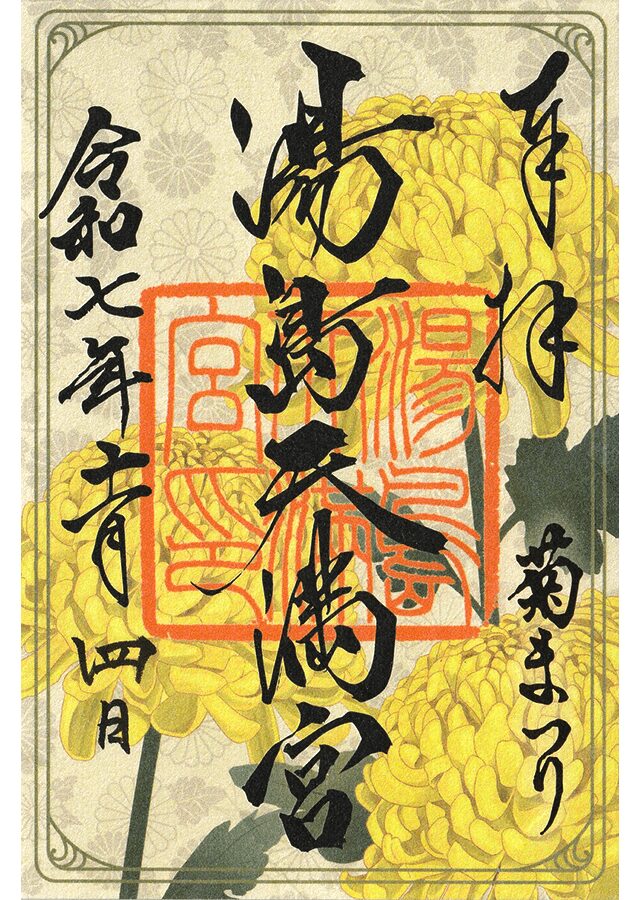 奉拝
菊まつり
湯島天満宮
令和七年十一月四日
湯嶋
天満
宮印